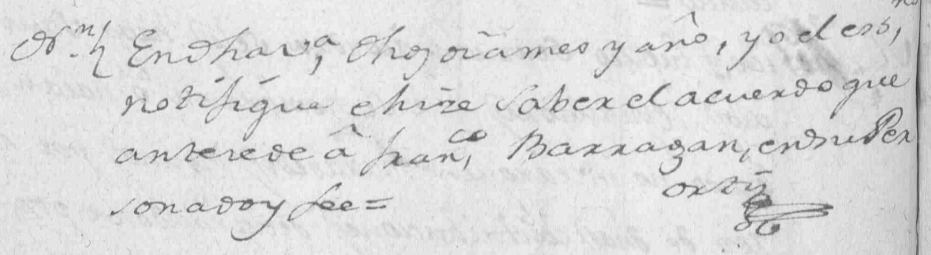 En dha va, dho dia mes y año, yo el essno,
notifique e hize saber el acuerdo que
antecede â Franco, Barragan, en su Per
sona doy fee =
ortiz